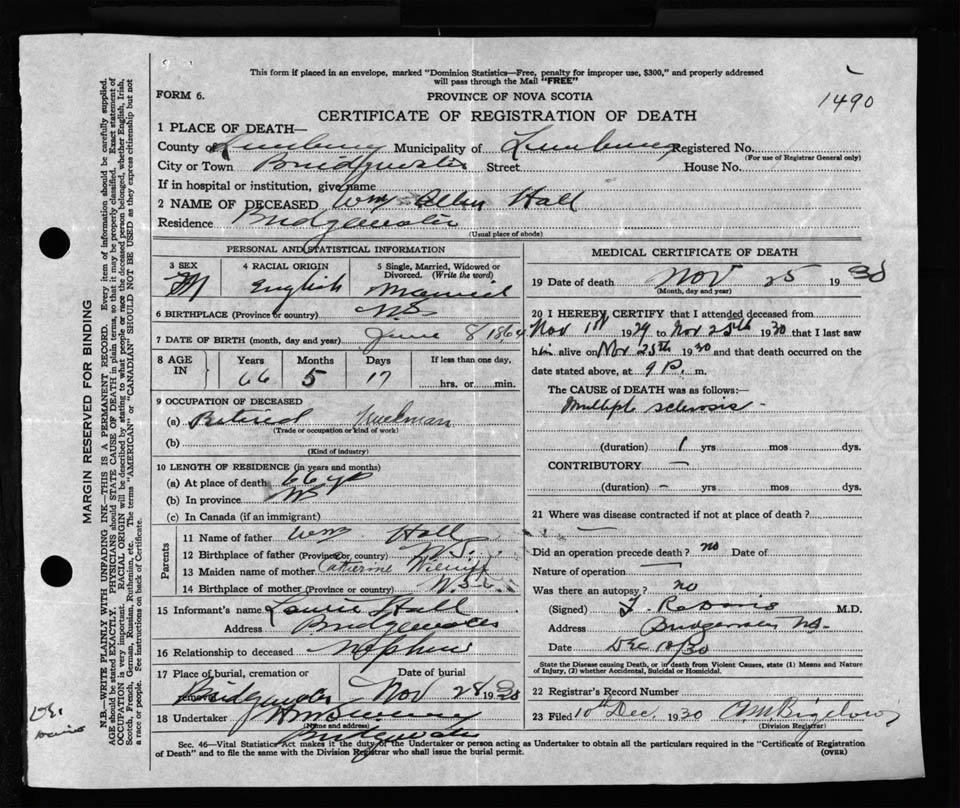 This form if placed in an envelope, marked "Dominion Statistics—Free, penalty for improper use, $300," and properly addressed
will pass through the Mail "FREE"
FORM 6.
PROVINCE OF NOVA SCOTIA
1490
CERTIFICATE OF REGISTRATION OF DEATH
1 PLACE OF DEATH—
County of Lunenburg Municipality of Lunenburg Registered No.
(For use of Registrar General only)
City or Town Bridgewater Street House No.
If in hospital or institution, give name
2 NAME OF DECEASED Wm Allen Hall
Residence Bridgewater
(Usual place of abode)
PERSONAL AND STATISTICAL INFORMATION
3 SEX M
4 RACIAL ORIGIN English
5 Single, Married, Widowed or Divorced. (Write the word) Married
6 BIRTHPLACE (Province or country) N.S.
7 DATE OF BIRTH (month, day and year) June 8 1864
8 AGE IN Years 66 Months 5 Days 17 If less than one day, hrs. or min.
9 OCCUPATION OF DECEASED
(a) Retired
(Trade or occupation or kind of work)
(b)
(Kind of industry)
10 LENGTH OF RESIDENCE (in years and months)
(a) At place of death 66 yrs
(b) In province
(c) In Canada (if an immigrant)
Parents
11 Name of father Wm Hall
12 Birthplace of father (Province or country) N.S.
13 Maiden name of mother Catherine
14 Birthplace of mother (Province or country) N.S.
15 Informant's name Hall
Address Bridgewater
16 Relationship to deceased Nephew
17 Place of burial, cremation or removal Bridgewater Date of burial Nov 28 1930
18 Undertaker
(Name and address)
Bridgewater
MEDICAL CERTIFICATE OF DEATH
19 Date of death Nov 25 1930
(Month, day and year)
20 I HEREBY CERTIFY that I attended deceased from
Nov 1st 1929 to Nov 25th 1930 that I last saw
him alive on Nov 25th 1930 and that death occurred on the
date stated above, at 9 P. m.
The CAUSE of DEATH was as follows:—
Multiple sclerosis
(duration) 1 yrs mos dys.
CONTRIBUTORY —
(duration) — yrs mos dys.
21 Where was disease contracted if not at place of death?
—
Did an operation precede death? no Date of
Nature of operation —
Was there an autopsy? no
(Signed) M.D.
Address Bridgewater N.S.
Date Dec 10/30
State the Disease causing Death, or in death from Violent Causes, state (1) Means and Nature
of Injury, (2) whether Accidental, Suicidal or Homicidal.
22 Registrar's Record Number
23 Filed 10th Dec 1930
(Division Registrar)
Sec. 46—Vital Statistics Act makes it the duty of the Undertaker or person acting as Undertaker to obtain all the particulars required in the "Certificate of Registration
of Death" and to file the same with the Division Registrar who shall issue the burial permit.
(OVER)
MARGIN RESERVED FOR BINDING
N.B.—WRITE PLAINLY WITH UNFADING INK—THIS IS A PERMANENT RECORD. Every item of information should be carefully supplied.
AGE should be stated EXACTLY. PHYSICIANS should STATE CAUSE OF DEATH in plain terms, so that it may be properly classified. Exact statement of
OCCUPATION is very important. RACIAL ORIGIN will be described by stating to what people or race the deceased person belonged, whether English, Irish,
Scotch, French, German, Russian, Ruthenian, etc. The terms "AMERICAN" or "CANADIAN" SHOULD NOT BE USED as they express citizenship but not
a race or people. See instructions on back of Certificate.